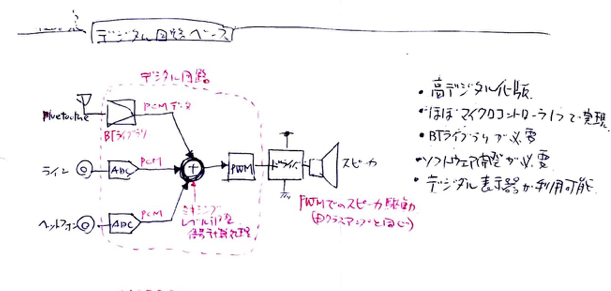 デジタル回路ベース
デジタル回路
Bluetooth
PCMデータ
BTライブラリ
ライン
ADC
PCM
+
PWM
ドライバ
スピーカ
ヘッドフォン
ADC
PCM
ミキシング
レベル調整
信号計算処理
PWMでのスピーカ駆動
(Dクラスアンプと同じ)
・高デジタル化版
・ほぼマイクロコントローラ1つで実現
・BTライブラリが必要
・ソフトウェア開発が必要
・デジタル表示器が利用可能